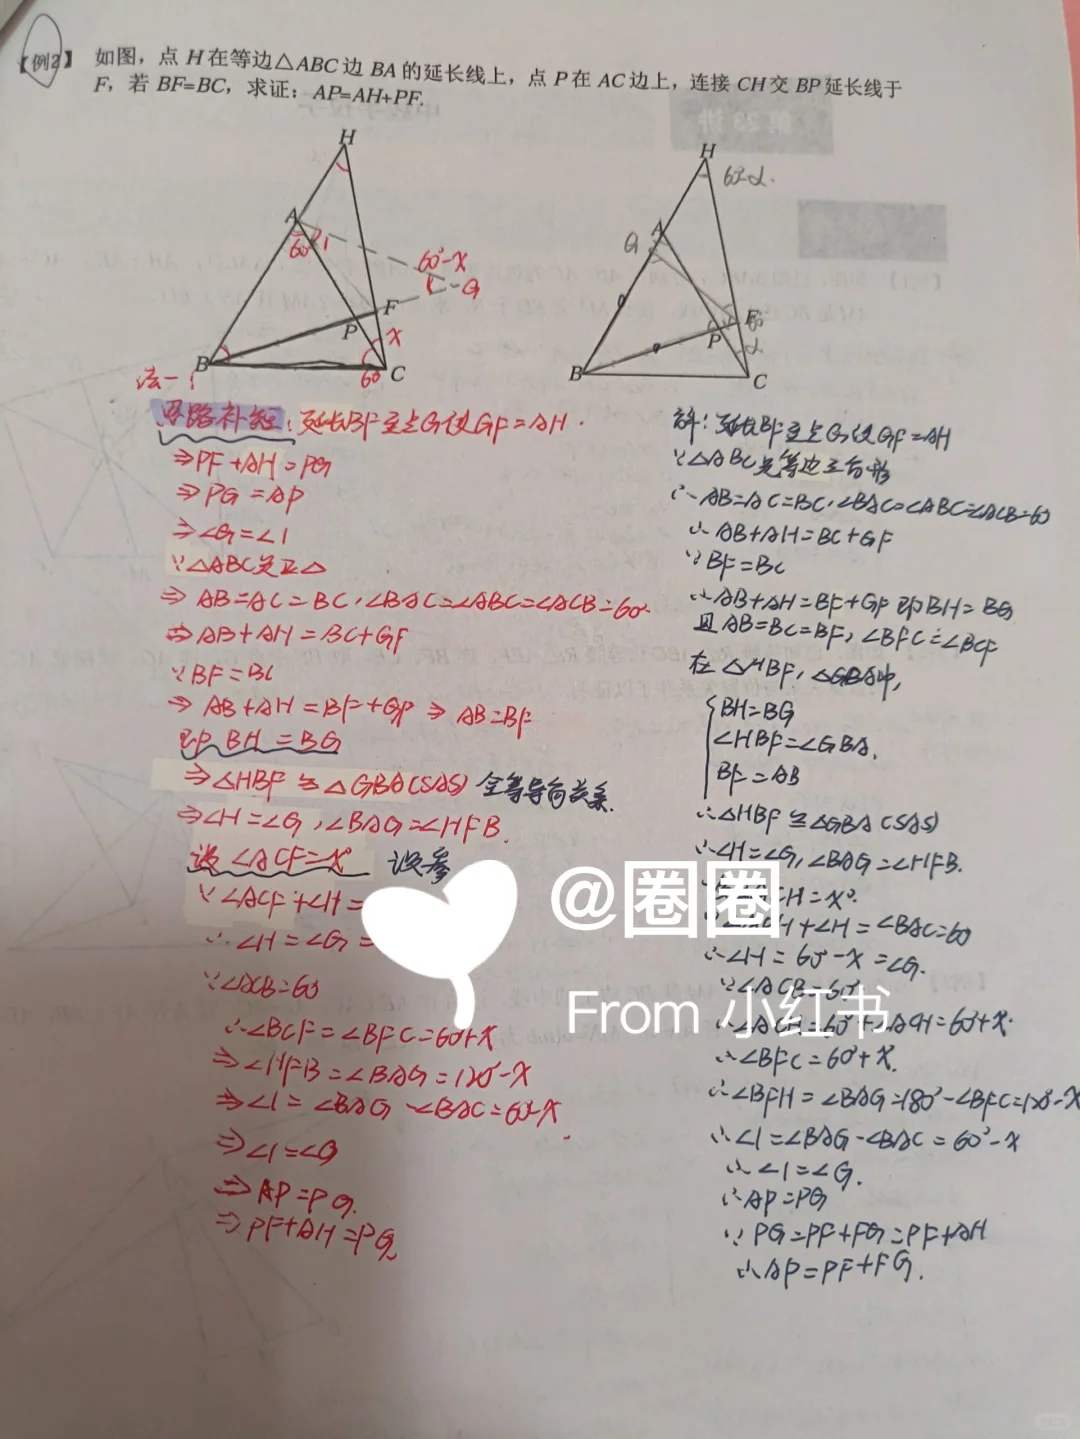 【例2】 如图，点 H 在等边△ABC 边 BA 的延长线上，点 P 在 AC 边上，连接 CH 交 BP 延长线于
F，若 BF=BC，求证：AP=AH+PF.
H
A
60° 1
60°-x
G
F
P
x
B
60
C
H
60°-α.
A
G
F
P
α
B
C
法一：
思路补短：延长BF至点G使GF=AH.
⇒PF+AH=PG
⇒PG=AP
⇒∠G=∠1
∵△ABC为正△
⇒AB=AC=BC，∠BAC=∠ABC=∠ACB=60°
⇒AB+AH=BC+GF
∵BF=BC
⇒AB+AH=BF+GF ⇒ AB=BF
即BH=BG
⇒△HBF≌△GBA(SAS) 全等导角关系.
⇒∠H=∠G，∠BAG=∠HFB.
设∠ACF=x° 设参
∵∠ACF+∠H=
∴∠H=∠G=
∵∠ACB=60
∴∠BCF=∠BFC=60°+x
⇒∠HFB=∠BAG=120°-x
⇒∠1=∠BAG-∠BAC=60°-x.
⇒∠1=∠G
⇒AP=PG.
⇒PF+AH=PG
解：延长BF至点G使GF=AH
∵△ABC是等边三角形
∴AB=AC=BC，∠BAC=∠ABC=∠ACB=60
∴AB+AH=BC+GF
∵BF=BC
∴AB+AH=BF+GF 即BH=BG
且AB=BC=BF，∠BFC=∠BCF
在△HBF，△GBA中，
BH=BG
∠HBF=∠GBA.
BF=AB
∴△HBF≌△GBA(SAS)
∴∠H=∠G，∠BAG=∠HFB.
CH=x°.
∠ACH+∠H=∠BAC=60
∴∠H=60°-x=∠G.
∵∠ACB=60°
∴∠ACH=60°+∠ACH=60°+x.
∴∠BFC=60°+x.
∴∠BFH=∠BAG=180°-∠BFC=120°-x
∴∠1=∠BAG-∠BAC=60°-x
∴∠1=∠G.
∴AP=PG
∵PG=PF+FG=PF+AH
∴AP=PF+FG.
@圈圈
From 小红书